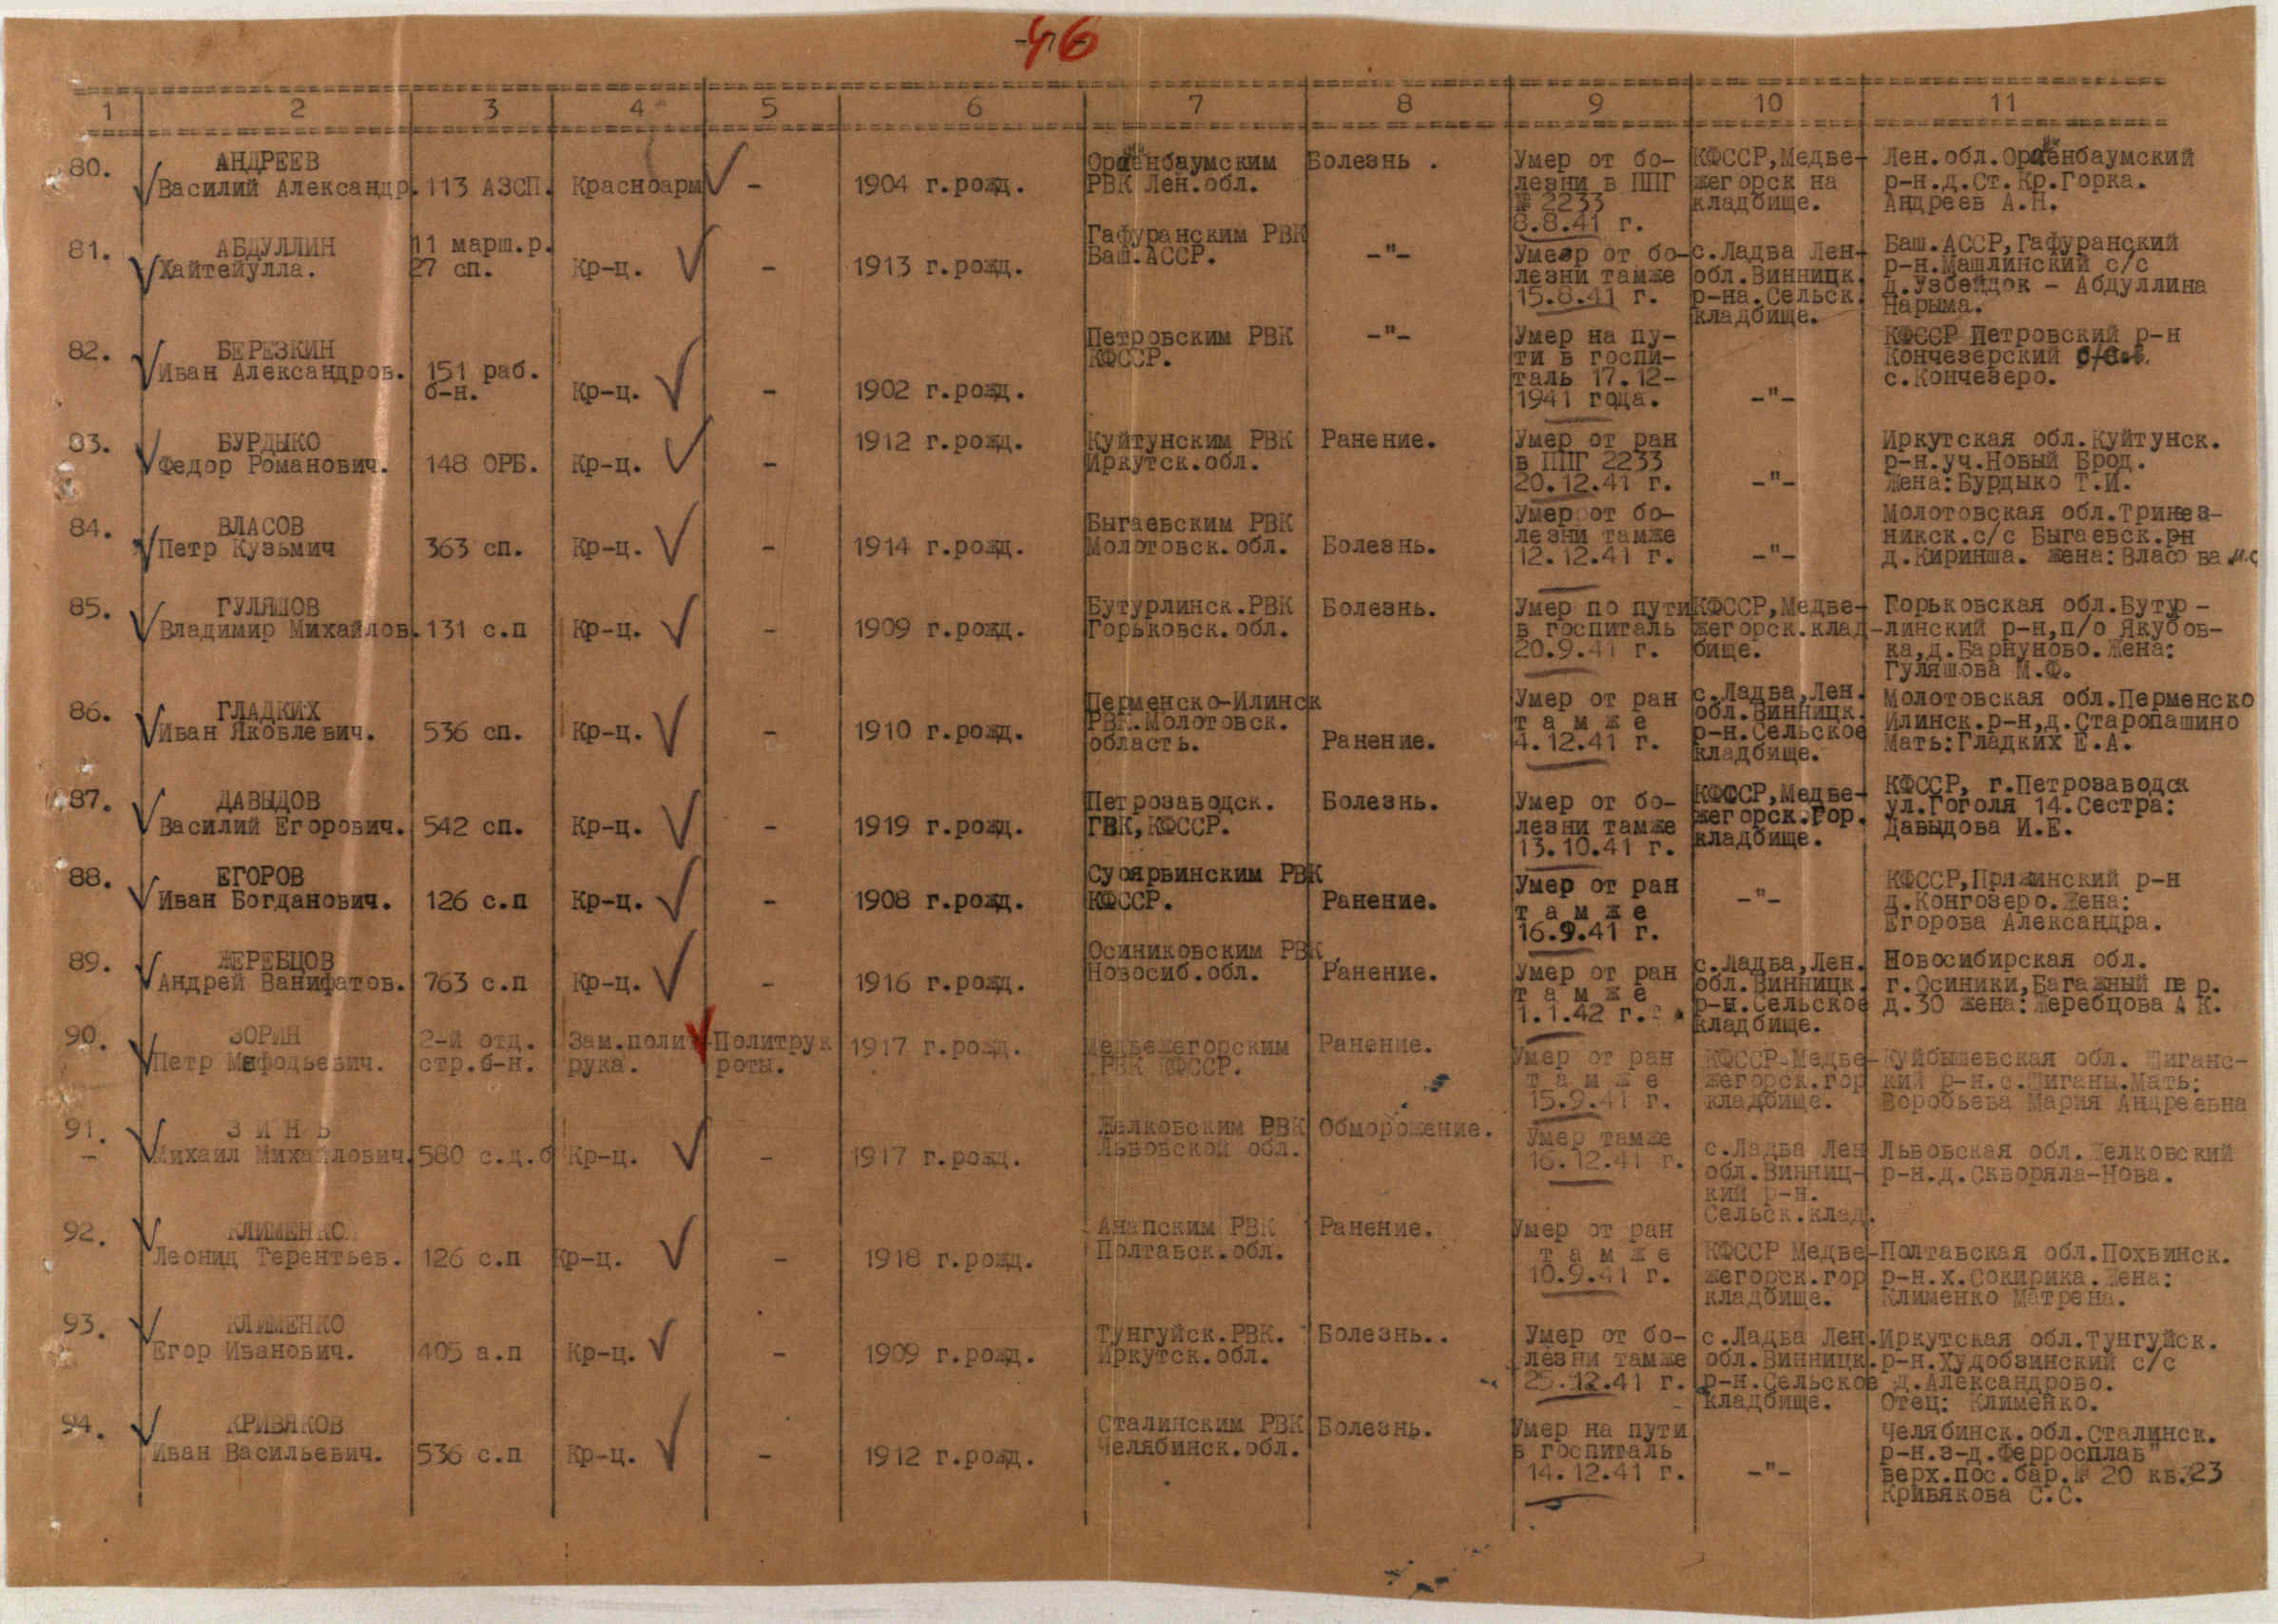 46
1 2 3 4 5 6 7 8 9 10 11
80. АНДРЕЕВ
Василий Александр. 113 АЗСП. Красноарм - 1904 г.рожд.
Ораенбаумским
РВК Лен.обл.
Болезнь .
Умер от бо-
лезни в ППГ
№ 2233
8.8.41 г.
КФССР,Медве-
жегорск на
кладбище.
Лен.обл.Ораенбаумский
р-н.д.Ст.Кр.Горка.
Андреев А.Н.
81. АБДУЛЛИН
Хайтейулла.
11 марш.р.
27 сп.
Кр-ц. - 1913 г.рожд.
Гафуранским РВК
Баш.АССР.
-"-
Умеэр от бо-
лезни тамже
15.8.41 г.
с.Ладва Лен-
обл.Винницк.
р-на.Сельск.
кладбище.
Баш.АССР,Гафуранский
р-н.Машлинский с/с
д.Узбейдок - Абдуллина
Нарыма.
82. БЕРЕЗКИН
Иван Александров.
151 раб.
б-н.
Кр-ц. - 1902 г.рожд.
Петровским РВК
КФССР.
-"-
Умер на пу-
ти в госпи-
таль 17.12-
1941 года.
-"-
КФССР Петровский р-н
Кончезерский
с.Кончезеро.
83. БУРДЫКО
Федор Романович. 148 ОРБ. Кр-ц. - 1912 г.рожд.
Куйтунским РВК
Иркутск.обл.
Ранение.
Умер от ран
в ППГ 2233
20.12.41 г.
-"-
Иркутская обл.Куйтунск.
р-н.уч.Новый Брод.
Жена:Бурдыко Т.И.
84. ВЛАСОВ
Петр Кузьмич 363 сп. Кр-ц. - 1914 г.рожд.
Быгаевским РВК
Молотовск.обл.
Болезнь.
Умер от бо-
лезни тамже
12.12.41 г.
-"-
Молотовская обл.Тринез-
никск.с/с Быгаевск.рн
д.Киринша. Жена:Власова
85. ГУЛЯШОВ
Владимир Михайлов. 131 с.п Кр-ц. - 1909 г.рожд.
Бутурлинск.РВК
Горьковск.обл.
Болезнь.
Умер по пути
в госпиталь
20.9.41 г.
КФССР,Медве-
жегорск.клад-
бище.
Горьковская обл.Бутур-
линский р-н,п/о Якубов-
ка,д.Барнуново.Жена:
Гуляшова М.Ф.
86. ГЛАДКИХ
Иван Яковлевич. 536 сп. Кр-ц. - 1910 г.рожд.
Перменско-Илинск
РВК.Молотовск.
область.
Ранение.
Умер от ран
т а м ж е
4.12.41 г.
с.Ладва,Лен.
обл.Винницк.
р-н.Сельское
кладбище.
Молотовская обл.Перменско
Илинск.р-н,д.Старопашино
Мать:Гладких Е.А.
87. ДАВЫДОВ
Василий Егорович. 542 сп. Кр-ц. - 1919 г.рожд.
Петрозаводск.
ГВК,КФССР.
Болезнь.
Умер от бо-
лезни тамже
13.10.41 г.
КФССР,Медве-
жегорск.Гор.
кладбище.
КФССР, г.Петрозаводск
ул.Гоголя 14.Сестра:
Давыдова И.Е.
88. ЕГОРОВ
Иван Богданович. 126 с.п Кр-ц. - 1908 г.рожд.
Суоярвинским РВК
КФССР.
Ранение.
Умер от ран
т а м ж е
16.9.41 г.
-"-
КФССР,Пряжинский р-н
д.Конгозеро.Жена:
Егорова Александра.
89. ЖЕРЕБЦОВ
Андрей Ванифатов. 763 с.п Кр-ц. - 1916 г.рожд.
Осиниковским РВК
Новосиб.обл.
Ранение.
Умер от ран
т а м ж е
1.1.42 г.
с.Ладва,Лен.
обл.Винницк.
р-н.Сельское
кладбище.
Новосибирская обл.
г.Осиники,Багажный пер.
д.30 жена:Жеребцова А К.
90. ЗОРИН
Петр Мефодьевич.
2-й отд.
стр.б-н.
Зам.полит
рука.
Политрук
роты.
1917 г.рожд.
Медвежегорским
РВК КФССР.
Ранение.
Умер от ран
т а м ж е
15.9.41 г.
КФССР-Медве-
жегорск.гор
кладбище.
Куйбышевская обл. Шиганс-
кий р-н.с.Шиганы.Мать:
Воробьева Мария Андреевна
91. З И Н Ь
Михаил Михайлович. 580 с.д.б Кр-ц. - 1917 г.рожд.
Желковским РВК
Львовской обл.
Обморожение.
Умер тамже
16.12.41 г.
с.Ладва Лен
обл.Винниц-
кий р-н.
Сельск.клад.
Львовская обл.Желковский
р-н.д.Скворяла-Нова.
92. КЛИМЕНКО
Леонид Терентьев. 126 с.п Кр-ц. - 1918 г.рожд.
Анапским РВК
Полтавск.обл.
Ранение.
Умер от ран
т а м ж е
10.9.41 г.
КФССР Медве-
жегорск.гор
кладбище.
Полтавская обл.Похвинск.
р-н.х.Сокирика.Жена:
Клименко Матрена.
93. КЛИМЕНКО
Егор Иванович. 405 а.п Кр-ц. - 1909 г.рожд.
Тунгуйск.РВК.
Иркутск.обл.
Болезнь..
Умер от бо-
лезни тамже
25.12.41 г.
с.Ладва Лен.
обл.Винницк.
р-н.Сельское
кладбище.
Иркутская обл.Тунгуйск.
р-н.Худобзинский с/с
д.Александрово.
Отец: Клименко.
94. КРИВЯКОВ
Иван Васильевич. 536 с.п Кр-ц. - 1912 г.рожд.
Сталинским РВК
Челябинск.обл.
Болезнь.
Умер на пути
в госпиталь
14.12.41 г.
-"-
Челябинск.обл.Сталинск.
р-н.з-д.Ферросплав"
верх.пос.бар.№ 20 кв.23
Кривякова С.С.